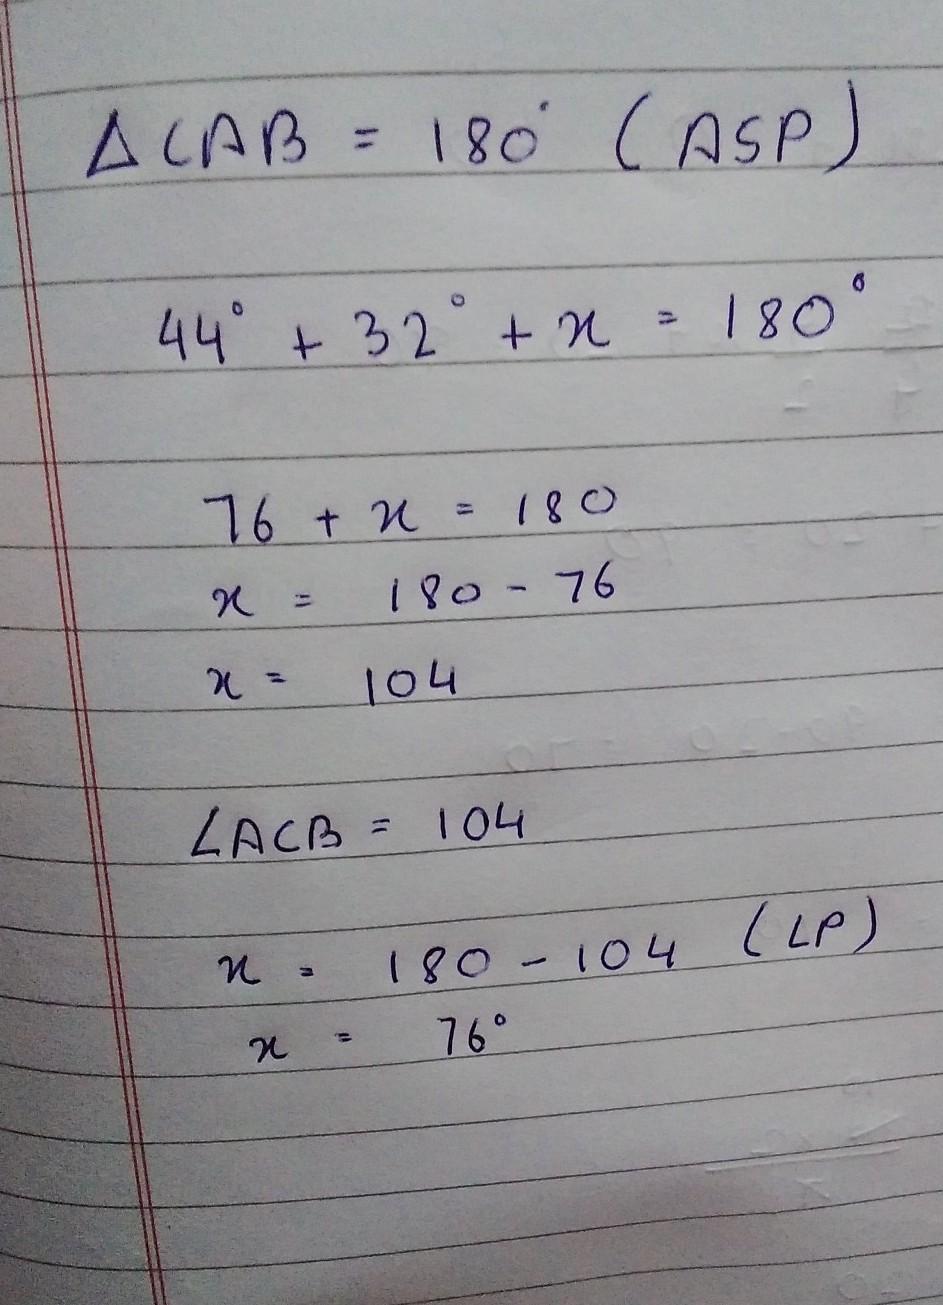 Δ CAB = 180° (ASP)
44° + 32° + x = 180°
76 + x = 180
x = 180 - 76
x = 104
∠ACB = 104
x = 180 - 104 (LP)
x = 76°